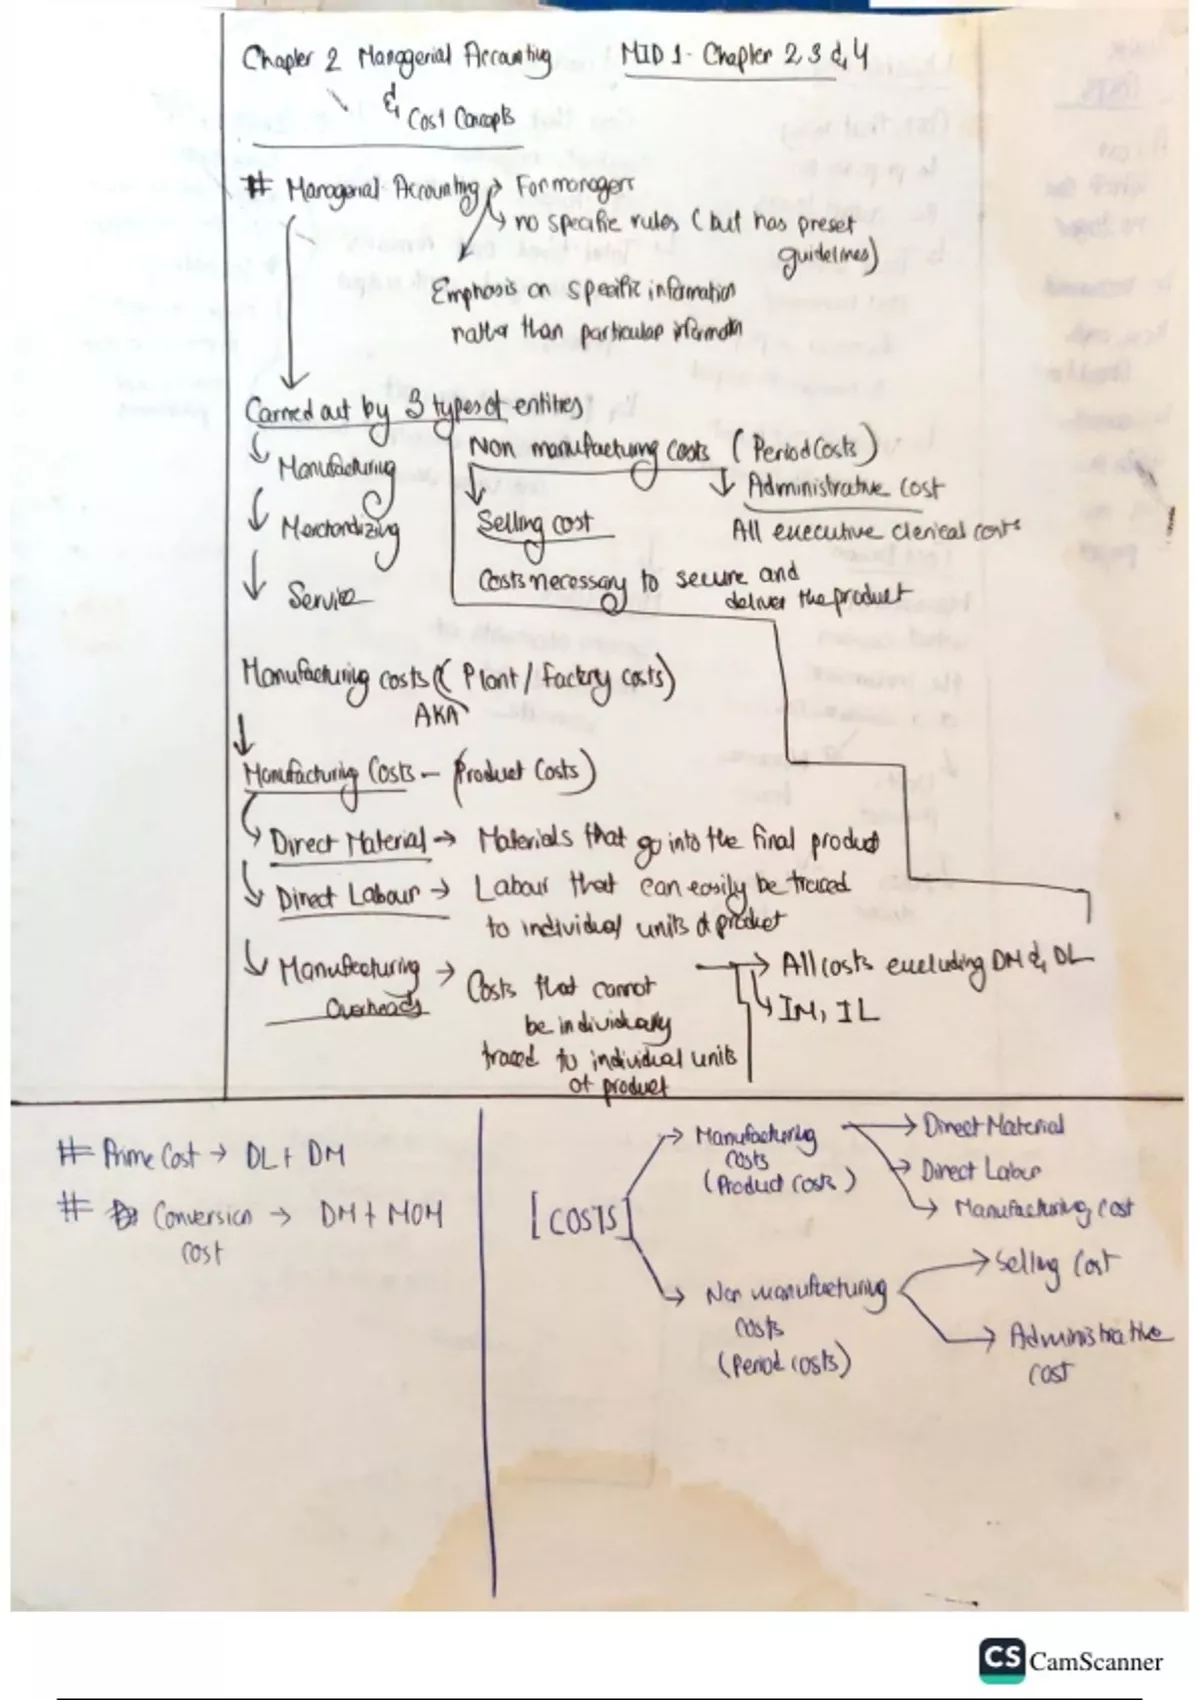 Chapter 2 Managerial Accounting
& Cost Concepts
MID 1 - Chapter 2, 3 & 4
# Managerial Accounting → For managers
→ no specific rules (but has preset
guidelines)
Emphasis on specific information
rather than particular information
Carried out by 3 types of entities
Manufacturing
Merchandizing
Service
Non manufacturing costs (Period Costs)
Selling cost
Costs necessary to secure and
deliver the product
Administrative cost
All executive clerical costs
Manufacturing costs (Plant / factory costs)
AKA
Manufacturing Costs - (Product Costs)
Direct Material → Materials that go into the final product
Direct Labour → Labour that can easily be traced
to individual units of product
Manufacturing Overheads → Costs that cannot
be individually
traced to individual units
of product
→ All costs excluding DM & DL
IM, IL
# Prime Cost → DL + DM
# Conversion cost → DM + MOH
[COSTS]
→ Manufacturing
costs
(Product costs)
→ Direct Material
→ Direct Labour
→ Manufacturing cost
→ Non manufacturing
costs
(Period costs)
→ Selling Cost
→ Administrative
cost
CS CamScanner